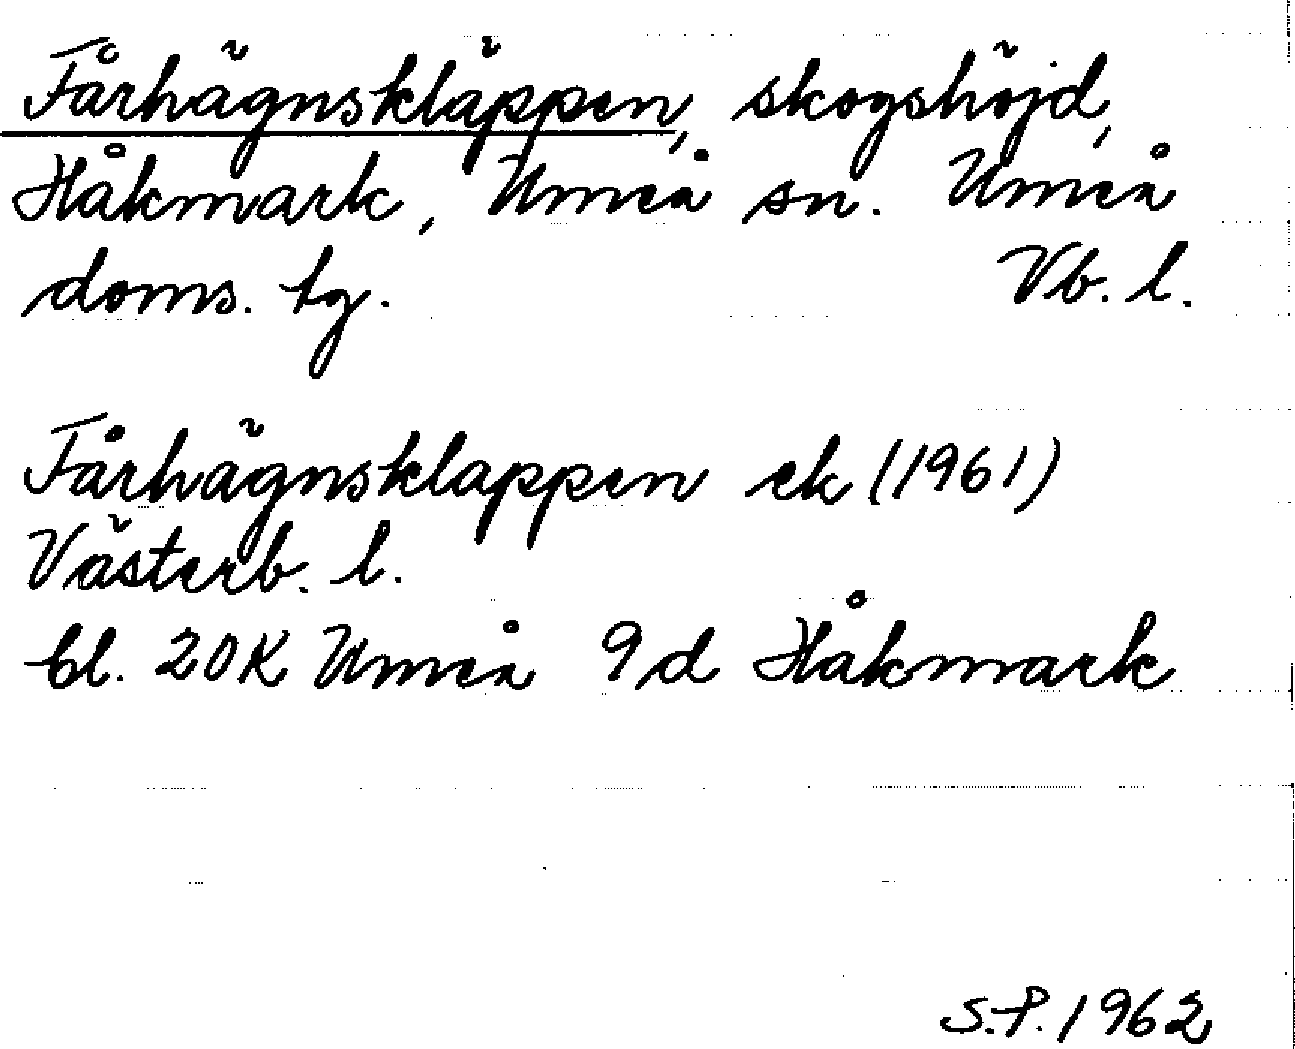 Fårhägnskläppen, skogshöjd,
Håkmark, Umeå sn. Umeå
doms. tg. Vb. l.
Fårhägnsklappen ek (1961)
Västerb. l.
bl. 20K Umeå 9d Håkmark
S.P. 1962